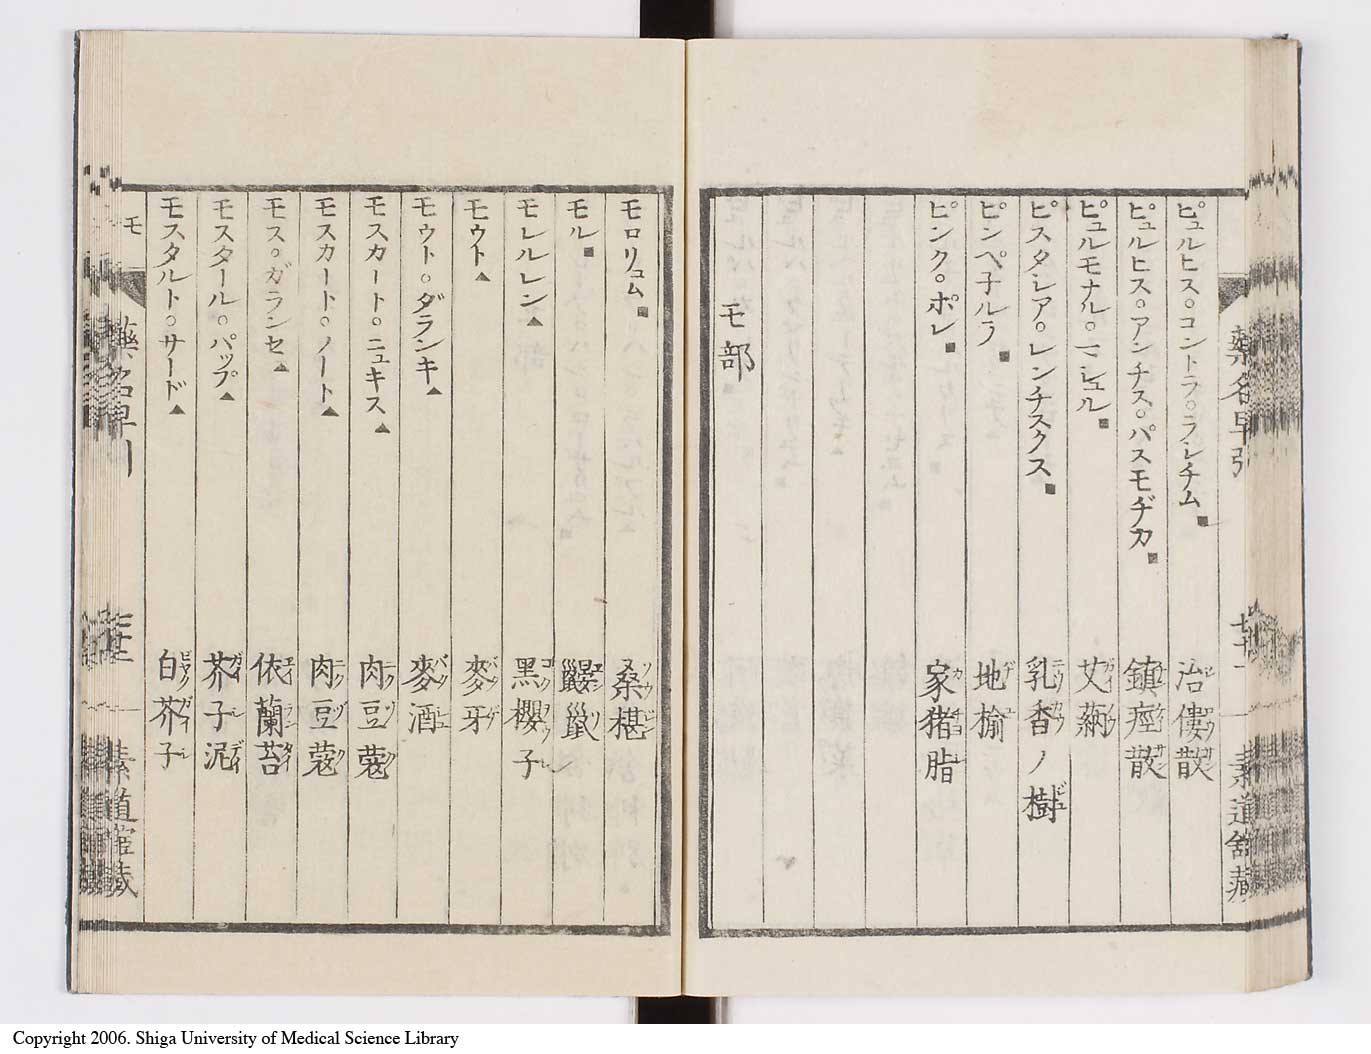 ピュルヒス。コントラ。ランチム■ 治僂散
ピュルヒス。アンチス。パスモヂカ■ 鎮痙散
ピュルモナル。マシュル■ 艾蒳
ピスタシア。レンチスクス■ 乳香ノ樹
ピンペ子ルラ■ 地榆
ピンク。ポレ■ 家猪脂
モ部
藥名早引
七十一
素道舘藏
モロリュム■ 桑椹
モル■ 鼴鼠
モレルレン▲ 黒櫻子
モウト▲ 麥牙
モウト。ダランキ▲ 麥酒
モスカート。ニュキス▲ 肉豆蔻
モスカート。ノート▲ 肉豆蔻
モス。ガランセ▲ 依蘭苔
モスタール。パップ▲ 芥子泥
モスタルト。サード▲ 白芥子
モ
藥名早引
Copyright 2006. Shiga University of Medical Science Library